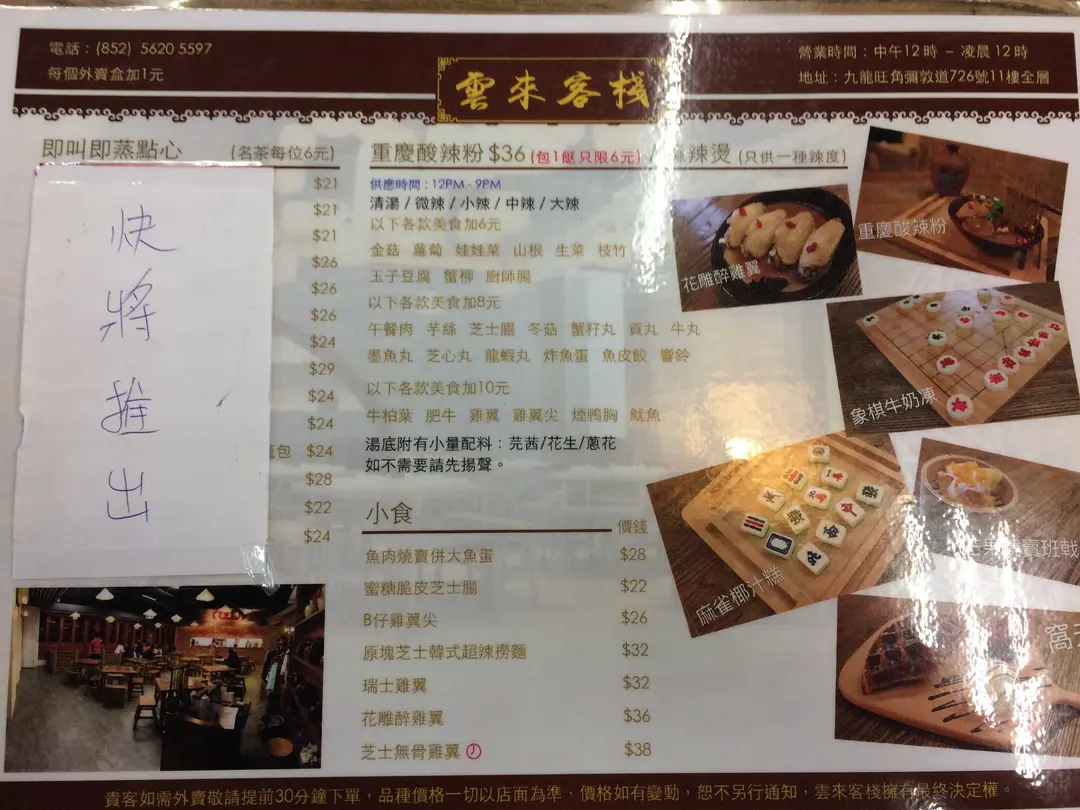 電話：(852) 5620 5597
每個外賣盒加1元
雲來客棧
營業時間：中午12時 – 凌晨12時
地址：九龍旺角彌敦道726號11樓全層
即叫即蒸點心 (名茶每位6元)
快將推出
$21
$21
$21
$26
$26
$26
$24
$29
$24
$24
包 $24
$28
$22
$24
重慶酸辣粉 $36 (包1餸只限6元) / 麻辣燙 (只供一種辣度)
供應時間：12PM - 9PM
清湯 / 微辣 / 小辣 / 中辣 / 大辣
以下各款美食加6元
金菇 蘿蔔 娃娃菜 山根 生菜 枝竹
玉子豆腐 蟹柳 廚師腸
以下各款美食加8元
午餐肉 芋絲 芝士腸 冬菇 蟹籽丸 貢丸 牛丸
墨魚丸 芝心丸 龍蝦丸 炸魚蛋 魚皮餃 響鈴
以下各款美食加10元
牛柏葉 肥牛 雞翼 雞翼尖 煙鴨胸 魷魚
湯底附有小量配料：芫茜/花生/蔥花
如不需要請先揚聲。
小食 價錢
魚肉燒賣併大魚蛋 $28
蜜糖脆皮芝士腸 $22
B仔雞翼尖 $26
原塊芝士韓式超辣撈麵 $32
瑞士雞翼 $32
花雕醉雞翼 $36
芝士無骨雞翼 $38
花雕醉雞翼
重慶酸辣粉
象棋牛奶凍
麻雀椰汁糕
賣班戟
窩
貴客如需外賣敬請提前30分鐘下單，品種價格一切以店面為準，價格如有變動，恕不另行通知，雲來客棧擁有最終決定權。